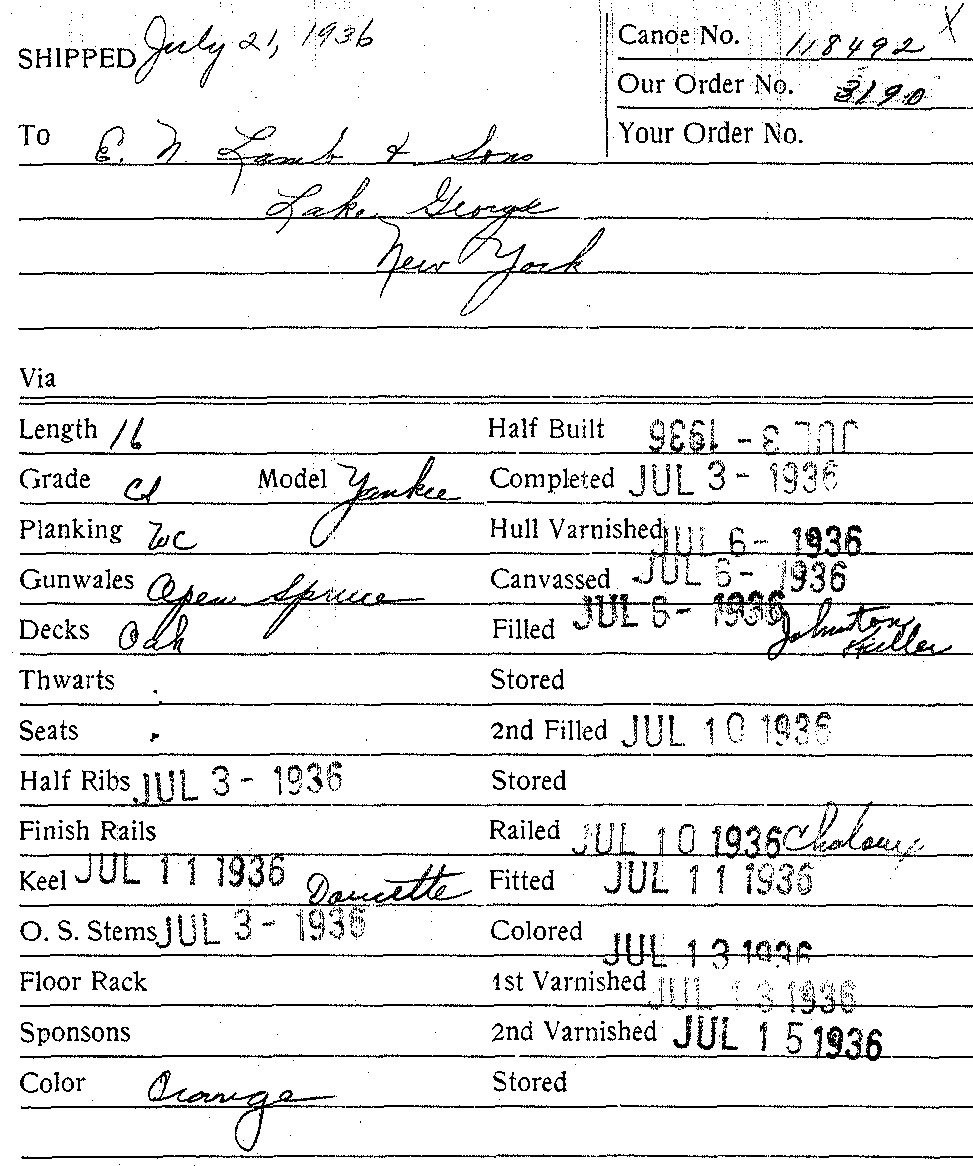 SHIPPED July 21, 1936
Canoe No. 118492 X
Our Order No. 3190
Your Order No.
To E. N. Lamb & Sons
Lake George
New York
Via
Length 16
Half Built JUL 3 - 1936
Grade Cl Model Yankee
Completed JUL 3 - 1936
Planking WC
Hull Varnished JUL 6 - 1936
Gunwales Open Spruce
Canvassed JUL 6 - 1936
Decks Oak
Filled JUL 6 - 1936 Johnston Filler
Thwarts
Stored
Seats
2nd Filled JUL 10 1936
Half Ribs JUL 3 - 1936
Stored
Finish Rails
Railed JUL 10 1936
Keel JUL 11 1936 Doucette
Fitted JUL 11 1936
O. S. Stems JUL 3 - 1936
Colored JUL 13 1936
Floor Rack
1st Varnished JUL 13 1936
Sponsons
2nd Varnished JUL 15 1936
Color Orange
Stored